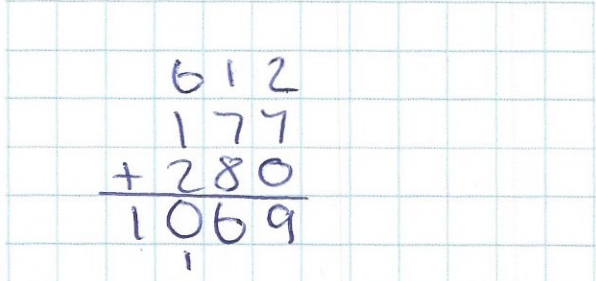 612
177
+ 280
1069
1